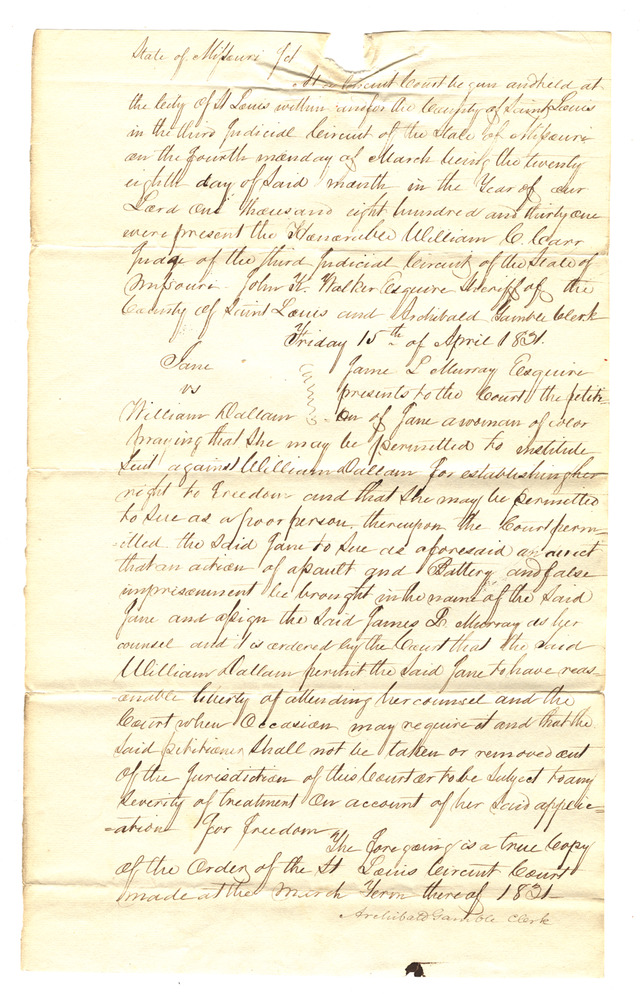 State of Missouri Sct
At a Circuit Court begun and held at
the City of St Louis within and for the County of Saint Louis
in the third Judicial Circuit of the State of Missouri
on the fourth monday of March being the twenty
eighth day of said month in the Year of our
Lord one thousand eight hundred and thirty one
were present the Honorable William C. Carr
Judge of the third Judicial Circuit of the State of
Missouri. John K. Walker Esquire Sheriff of the
County of Saint Louis and Archibald Gamble Clerk
Friday 15th of April 1831.
Jane
vs
William Dallam
Jame L Murray Esquire
presents to the Court the petiti-
-on of Jane a woman of color
praying that she may be permitted to institute
Suit against William Dallam for establishing her
right to Freedom and that she may be permitted
to Sue as a poor person. thereupon the Court perm-
-itted the said Jane to Sue as aforesaid and direct
that an action of assault and Battery and false
imprisonment be brought in the name of the said
Jane and assign the said James L Murray as her
counsel and it is ordered by the Court that the said
William Dallam permit the said Jane to have reas-
-onable liberty of attending her counsel and the
Court when Occasion may require it and that the
said petitioner shall not be taken or removed out
of the Jurisdiction of this Court or to be subject to any
severity of treatment on account of her said applic=
=ation for freedom
The foregoing is a true Copy
of the Order of the St Louis Circuit Court
made at the March Term thereof 1831
Archibald Gamble Clerk